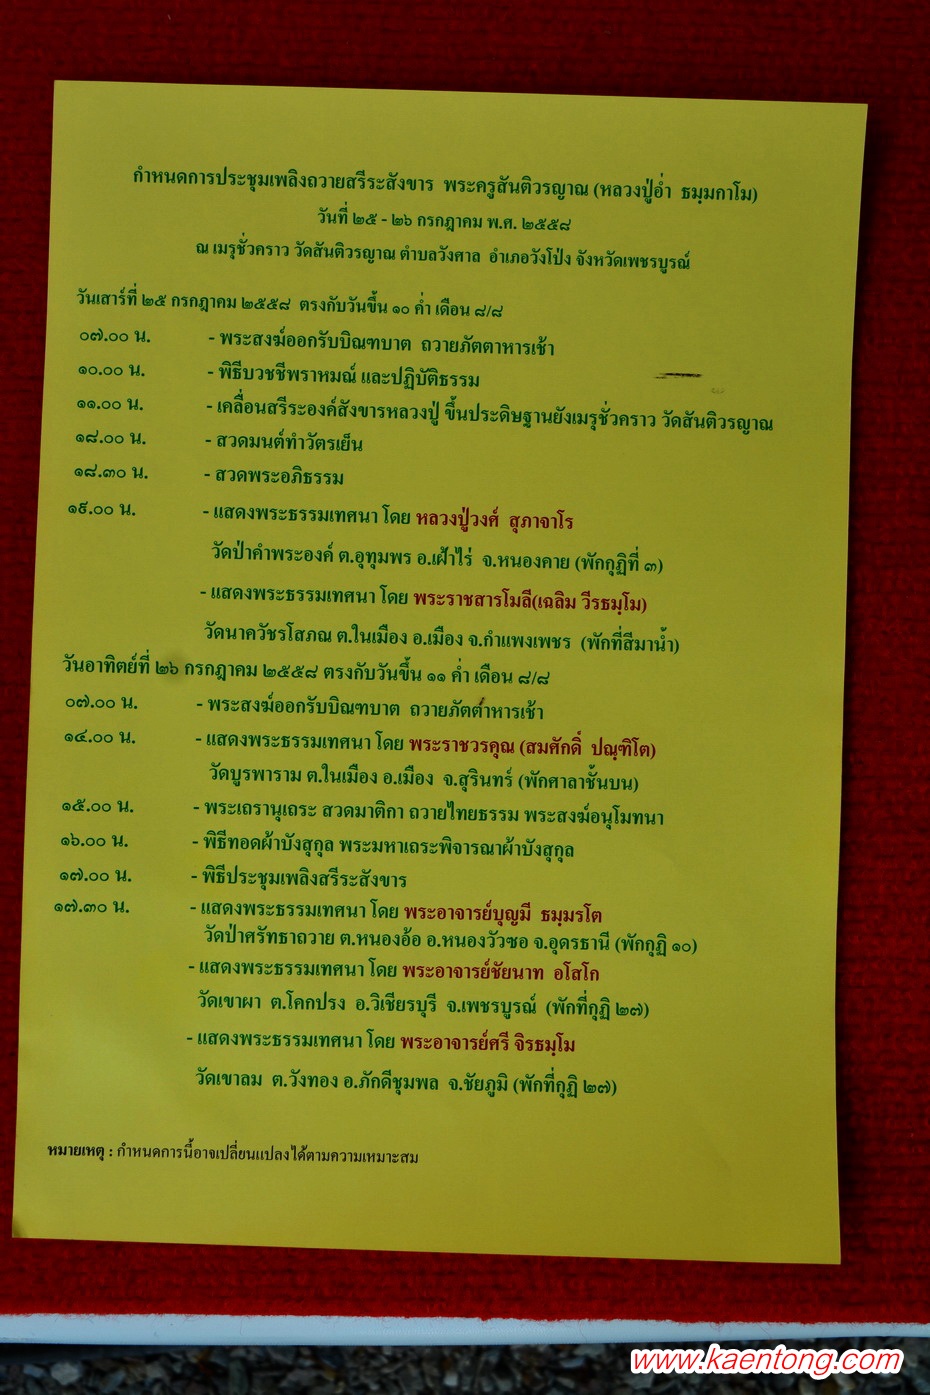 กำหนดการประชุมเพลิงถวายสรีระสังขาร พระครูสันติวรญาณ (หลวงปู่อ่ำ ธมฺมกาโม)
วันที่ ๒๕ - ๒๖ กรกฎาคม พ.ศ. ๒๕๕๘
ณ เมรุชั่วคราว วัดสันติวรญาณ ตำบลวังศาล อำเภอวังโป่ง จังหวัดเพชรบูรณ์
วันเสาร์ที่ ๒๕ กรกฎาคม ๒๕๕๘ ตรงกับวันขึ้น ๑๐ ค่ำ เดือน ๘/๘
๐๗.๐๐ น. - พระสงฆ์ออกรับบิณฑบาต ถวายภัตตาหารเช้า
๑๐.๐๐ น. - พิธีบวชชีพราหมณ์ และปฏิบัติธรรม
๑๑.๐๐ น. - เคลื่อนสรีระองค์สังขารหลวงปู่ ขึ้นประดิษฐานยังเมรุชั่วคราว วัดสันติวรญาณ
๑๘.๐๐ น. - สวดมนต์ทำวัตรเย็น
๑๘.๓๐ น. - สวดพระอภิธรรม
๑๙.๐๐ น. - แสดงพระธรรมเทศนา โดย หลวงปู่วงศ์ สุภาจาโร
วัดป่าคำพระองค์ ต.อุทุมพร อ.เฝ้าไร่ จ.หนองคาย (พักกุฏิที่ ๓)
- แสดงพระธรรมเทศนา โดย พระราชสารโมลี(เฉลิม วีรธมฺโม)
วัดนาควัชรโสภณ ต.ในเมือง อ.เมือง จ.กำแพงเพชร (พักที่สีมาน้ำ)
วันอาทิตย์ที่ ๒๖ กรกฎาคม ๒๕๕๘ ตรงกับวันขึ้น ๑๑ ค่ำ เดือน ๘/๘
๐๗.๐๐ น. - พระสงฆ์ออกรับบิณฑบาต ถวายภัตตาหารเช้า
๑๔.๐๐ น. - แสดงพระธรรมเทศนา โดย พระราชวรคุณ (สมศักดิ์ ปณฺฑิโต)
วัดบูรพาราม ต.ในเมือง อ.เมือง จ.สุรินทร์ (พักศาลาชั้นบน)
๑๕.๐๐ น. - พระเถรานุเถระ สวดมาติกา ถวายไทยธรรม พระสงฆ์อนุโมทนา
๑๖.๐๐ น. - พิธีทอดผ้าบังสุกุล พระมหาเถระพิจารณาผ้าบังสุกุล
๑๗.๐๐ น. - พิธีประชุมเพลิงสรีระสังขาร
๑๗.๓๐ น. - แสดงพระธรรมเทศนา โดย พระอาจารย์บุญมี ธมฺมรโต
วัดป่าศรัทธาถวาย ต.หนองอ้อ อ.หนองวัวซอ จ.อุดรธานี (พักกุฏิ ๑๐)
- แสดงพระธรรมเทศนา โดย พระอาจารย์ชัยนาท อโสโก
วัดเขาผา ต.โคกปรง อ.วิเชียรบุรี จ.เพชรบูรณ์ (พักที่กุฏิ ๒๗)
- แสดงพระธรรมเทศนา โดย พระอาจารย์ศรี จิรธมฺโม
วัดเขาลม ต.วังทอง อ.ภักดีชุมพล จ.ชัยภูมิ (พักที่กุฏิ ๒๗)
หมายเหตุ : กำหนดการนี้อาจเปลี่ยนแปลงได้ตามความเหมาะสม
www.kaentong.com